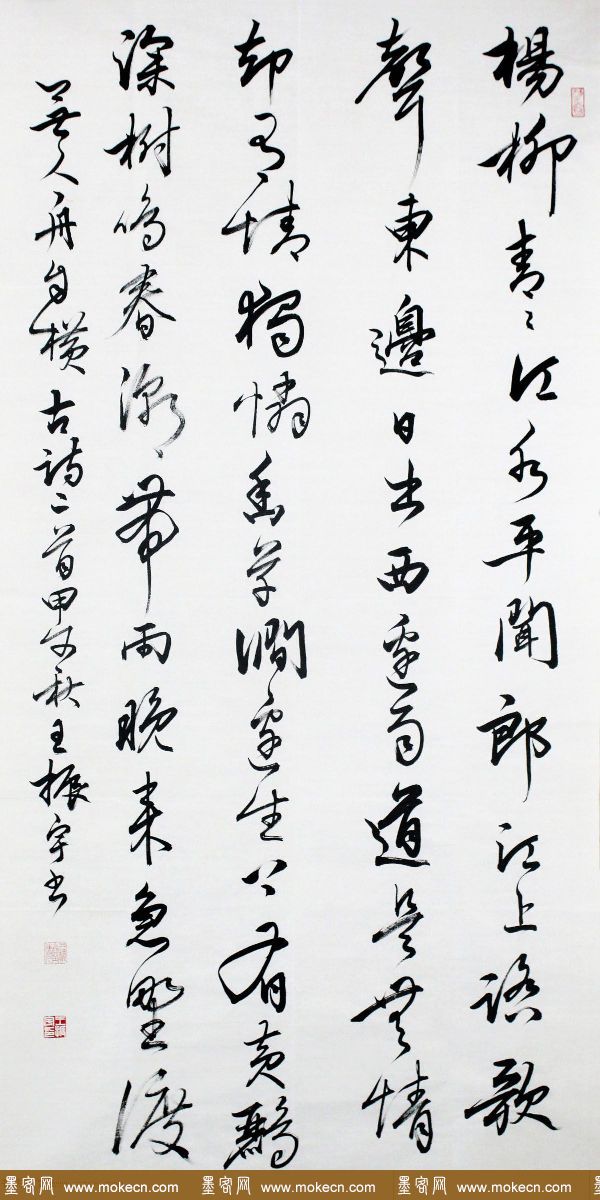 楊柳青々江水平聞郎江上踏歌
聲東邊日出西邊雨道是無情
却有情獨憐幽草澗邊生上有黄鸝
深樹鳴春潮帶雨晚来急野渡
無人舟自横古詩二首甲午秋王振宇书
墨客网 www.mokecn.com 墨客网 www.mokecn.com 墨客网 www.mokecn.com 墨客网 www.mokecn.com